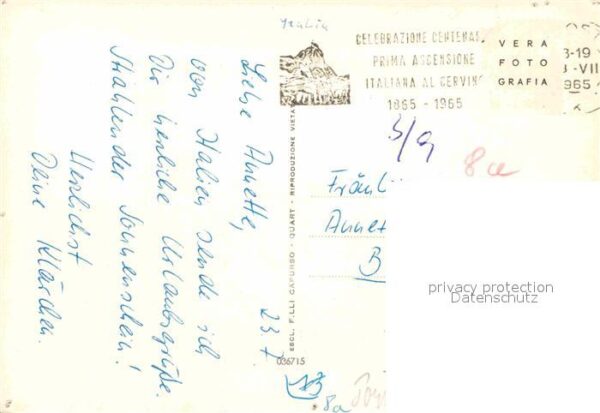 Italia
CELEBRAZIONE CENTENAR
PRIMA ASCENSIONE
ITALIANA AL CERVINO
1865 - 1965
VERA
FOTO
GRAFIA
8-19
-VII
1965
3/9
8a
23 7
Liebe Annette,
von Italien sende ich
Dir herzliche Urlaubsgrüße.
Strahlender Sonnenschein!
Herzlichst
Deine Klärchen.
ESCL. F.LLI CAPURSO - QUART - RIPRODUZIONE VIETATA
036715
Fräul
Annet
B
privacy protection
Datenschutz
8a